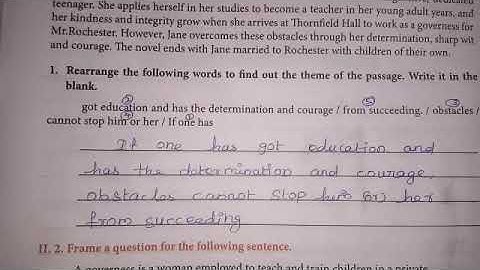 teenager. She applies herself in her studies to become a teacher in her young adult years, and
her kindness and integrity grow when she arrives at Thornfield Hall to work as a governess for
Mr.Rochester. However, Jane overcomes these obstacles through her determination, sharp wit
and courage. The novel ends with Jane married to Rochester with children of their own.
1. Rearrange the following words to find out the theme of the passage. Write it in the
blank.
got education and has the determination and courage / from succeeding. / obstacles /
cannot stop him or her / If one has
If one has got education and
has the determination and courage,
obstacles cannot stop him (or) her
from succeeding
II. 2. Frame a question for the following sentence.
A governess is a woman employed to teach and train children in a private